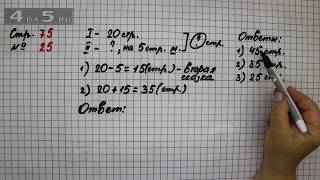 4ДО5.РУ
Стр. 75
№ 25
I - 20 стр.
II - ?, на 5 стр. м.
? стр.
1) 20-5=15(стр.) - вторая
2) 20+15=35(стр.)
Ответ:
Ответы:
1) 45 стр.
2) 35 стр.
3) 25 стр.